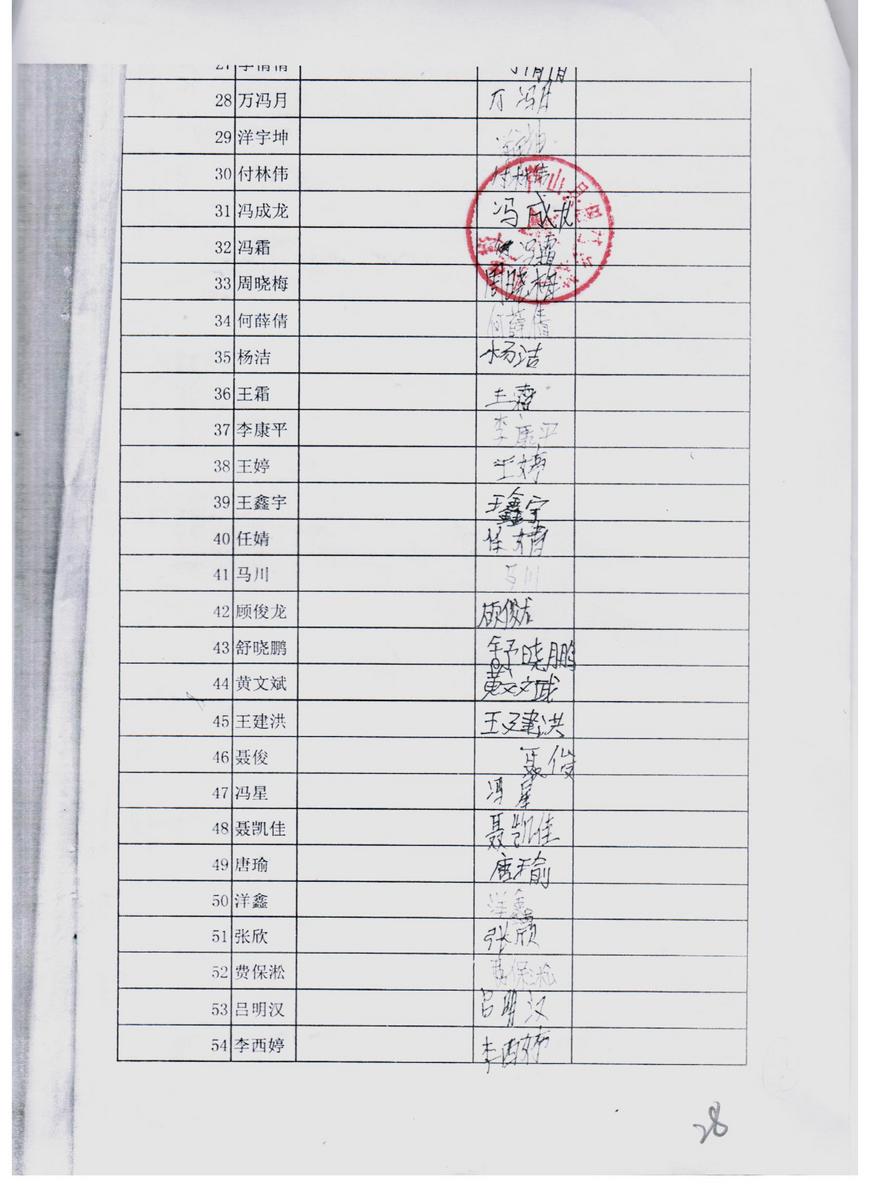 28 万冯月 万冯月
29 洋宇坤
30 付林伟 付林伟
31 冯成龙 冯成龙
32 冯霜 冯霜
33 周晓梅 周晓梅
34 何薛倩 何薛倩
35 杨洁 杨洁
36 王霜 王霜
37 李康平 李康平
38 王婷 王婷
39 王鑫宇 王鑫宇
40 任婧 任婧
41 马川 马川
42 顾俊龙 顾俊龙
43 舒晓鹏 舒晓鹏
44 黄文斌 黄文
45 王建洪 王建洪
46 聂俊 聂俊
47 冯星 冯星
48 聂凯佳 聂凯佳
49 唐瑜 唐瑜
50 洋鑫 洋鑫
51 张欣 张
52 费保淞 费保淞
53 吕明汉 吕明汉
54 李西婷 李西婷
28